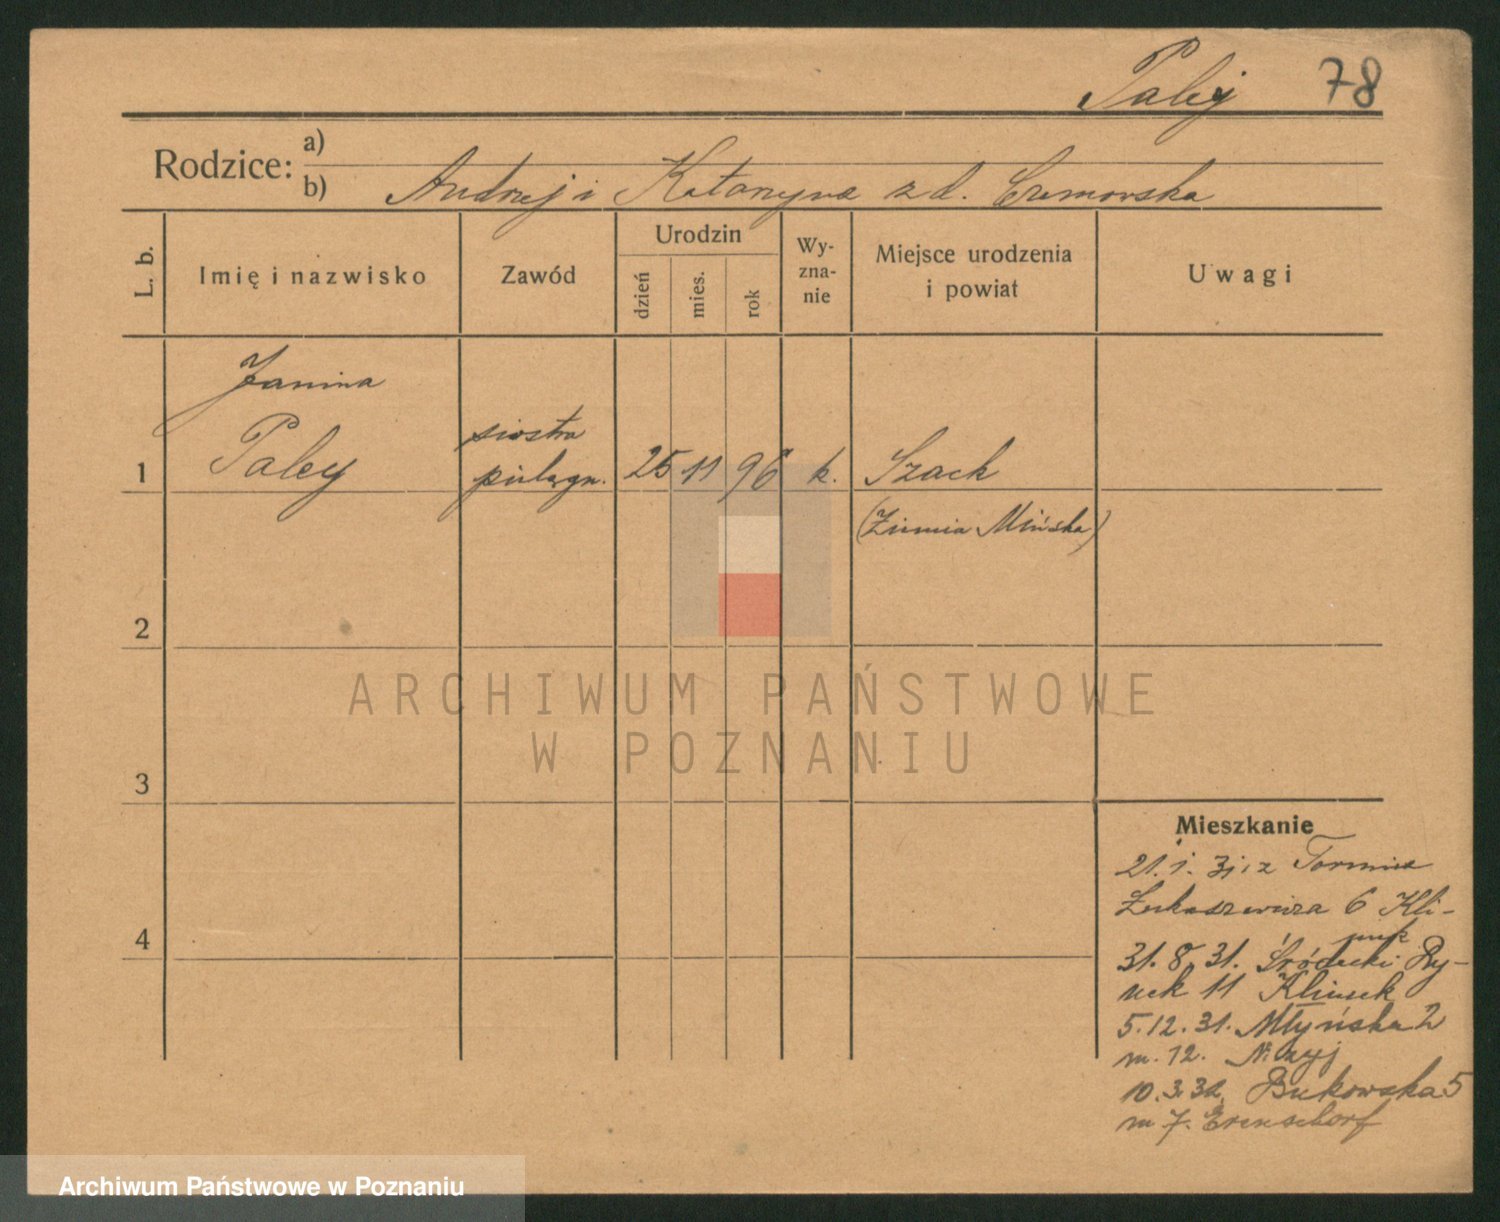 Paley 78
Rodzice: a)
b) Andrzej i Katarzyna z d. Czemowska
L. b. Imię i nazwisko Zawód Urodzin dzień mies. rok Wy-zna-nie Miejsce urodzenia i powiat Uwagi
Janina
siostra
1 Paley pielęgn. 25 11 96 k. Szack
(Ziemia Mińska)
2
ARCHIWUM PAŃSTWOWE
W POZNANIU
3
Mieszkanie
21. 1. 31. z
6 Kli-
4
31. 8. 31. Śródecki Ry-
nek 11 Klimek
5. 12. 31. Młyńska 2
m. 12.
10. 3. 32. Bukowska 5
m 7.
Archiwum Państwowe w Poznaniu